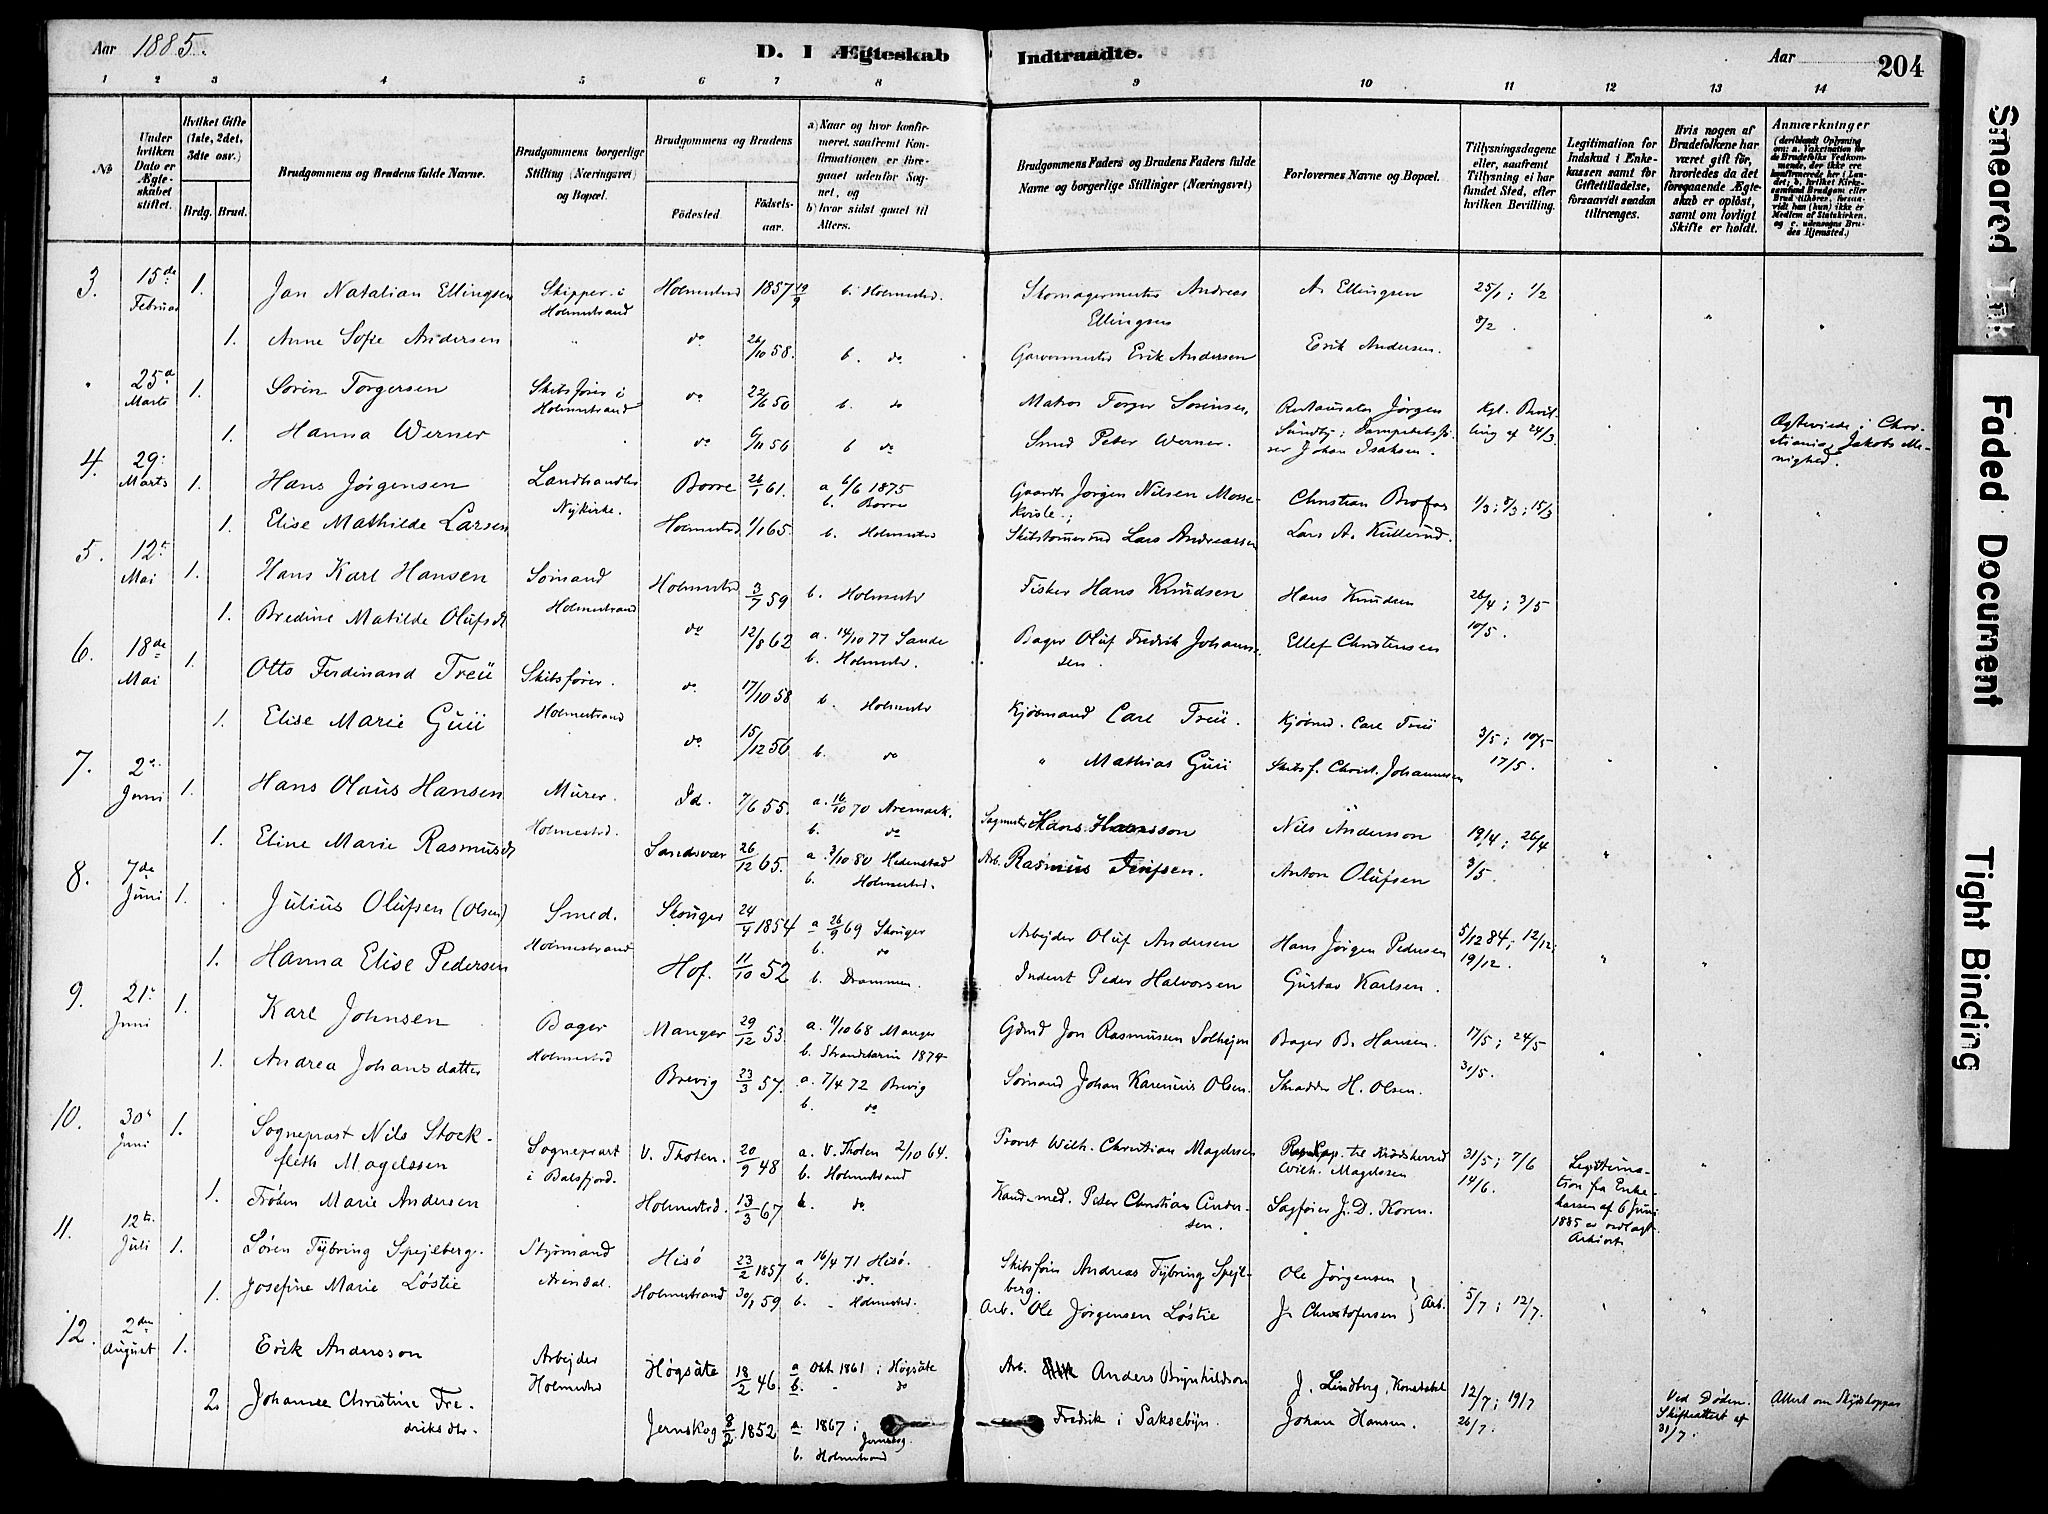 Aar 1885.
D. I Ægteskab Indtraadte.
Aar 204
1 2 3 4 5 6 7 8 9 10 11 12 13 14
№
Under hvilken Dato er Ægteskabet stiftet.
Hvilket Gifte (1ste, 2det, 3die osv.)
Brdg. Brud.
Brudgommens og Brudens fulde Navne.
Brudgommens borgerlige Stilling (Næringsvei) og Bopæl.
Brudgommens og Brudens
Födested.
Födselsaar.
a) Naar og hvor konfirmeret, saafremt Konfirmationen er foregaaet udenfor Sognet, og
b) hvor sidst gaaet til Alters.
Brudgommens Faders og Brudens Faders fulde Navne og borgerlige Stillinger (Næringsvei)
Forlovernes Navne og Bopæl.
Tillysningsdagene eller, saafremt Tillysning ei har fundet Sted, efter hvilken Bevilling.
Legitimation for Indskud i Enkekassen samt for Giftetilladelse, forsaavidt saadan tiltrænges.
Hvis nogen af Brudefolkene har været gift før, hvorledes da det foregaaende Ægteskab er opløst, samt om lovligt Skifte er holdt.
Anmærkninger
3. 15de Februar 1. Jan Natalian Ellingsen Skipper i Holmestrand Holmestrd 1857 19/9 b. Holmestrd. Skomagermester Andreas Ellingsen A. Ellingsen 25/1; 1/2 8/2.
1. Anne Sofie Andersen do 26/10 58. b. do Garvermester Erik Andersen Erik Andersen.
" 25d Marts 1. Søren Torgersen Skibsfører i Holmestrand do 22/6 50 b. do Matros Torger Sørensen Restauratør Jørgen Kgl. Bevilling af 24/3
1. Hanna Werner do 6/11 56 b do Smed Peter Werner. Sundby; Johan Isaksen. Jakobs Menighed.
4. 29. Marts 1. Hans Jørgensen Landhandler Nykirke. Borre 26/1 61. a 6/6 1875 b. Borre Gaardbr Jørgen Nilsen Mossekvisle; Christian Brofos 1/3; 8/3; 15/3
1. Elise Mathilde Larsen Holmestrd 1/1 65. b. Holmestrd Lars Andreassen Lars A. Kullerud.
5. 12t Mai 1. Hans Karl Hansen Sømand Holmestrand Holmestrd 3/7 59 b. Holmestr Fisker Hans Knudsen Hans Knudsen 26/4; 3/5 10/5.
1. Bredine Matilde Olufsdt do 12/8 62 a. 14/10 77 Sande b. Holmestr. Bager Oluf Fredrik Johannessen. Ellef Christensen
6. 18de Mai 1. Otto Ferdinand Treü Skibsfører. Holmestrand do 17/10 58 b. Holmestr Kjøbmand Carl Treü. Kjøbmd. Carl Treü 3/5; 10/5 17/5.
1. Elise Marie Guii do 15/12 56 b. do " Mathias Guii Skibsf. Christ. Johannesen
7. 2. Juni 1. Hans Olaus Hansen Murer. Holmestrd. Id. 7/6 55. a. 16/10 70 Aremark. b. do Hans Hansson Nils Andersson 19/4; 26/4 3/5.
1. Eline Marie Rasmusdt Sandsvær 26/12 65. a 3/10 80 Hedenstad b. Holmestrd. Arb. Rasmus Jensen. Anton Olufsen
8. 7de Juni 1. Julius Olufsen (Olsen) Smed. Holmestrand Skouger 24/4 1854 a 26/9 69 Skouger b. do Arbejder Oluf Andersen Hans Jørgen Pedersen 5/12 84; 12/12; 19/12.
1. Hanna Elise Pedersen Hof. 11/10 52 b. Drammen. Inderst Peder Halvorsen Gustav Karlsen.
9. 21. Juni 1. Karl Johnsen Bager Holmestrd Manger 29/12 53 a. 11/10 68 Manger b. 1874 Gdmd Jon Rasmussen Bager B. Hansen. 17/5; 24/5 31/5.
1. Andrea Johansdatter Brevig 23/3 57. a. 7/4 72 Brevig b. do Sømand Johan Olsen. Skrædder H. Olsen.
10. 30. Juni 1. Sogneprest Nils Stockfleth Magelssen Sogneprest i Balsfjord. V. Thoten. 20/9 48 a. V. Thoten 2/10 64. b. Holmestrand Provst Wilh. Christian Magelssen Wilh. Magelssen 31/5; 7/6 14/6. Legitimation fra Enkekassen af 6 Juni 1885 er vedlagt Arkivet.
1. Frøken Marie Andersen Holmestrd. 13/3 67 b. do. Kand. med. Peter Christian Andersen. Sagfører J. D. Koren.
11. 12te. Juli 1. Søren Tybring Spejlberg. Styrmand Arendal. Hisö 23/2 1857 a 16/4 71 Hisö. b. do. Skibsfører Andreas Tybring Spejlberg. Ole Jørgensen 5/7; 12/7.
1. Josefine Marie Løstie Holmestrand 30/8 59 b. - Holmestrd. Arb. Ole Jørgensen Løstie J. Christofersen } Arb.
12. 2den August 1. Erik Andersson Arbejder Holmestrd Høgsäte 18/2 46 a Okt. 1861 i Høgsäte b. - do Arb. Anders Brynhildson J. Lindberg, Konstabel 12/7; 19/7 26/7. Ved Døden. Skifteattest af 31/7. Attest om Skydskopper
2. Johanne Christine Fredriksdtr. Jernskog 8/2 1852 a 1867 i Jernskog. b. Holmestrand Fredrik i Saksebyn. Johan Hansen.
Smeared Ink
Faded Document
Tight Binding